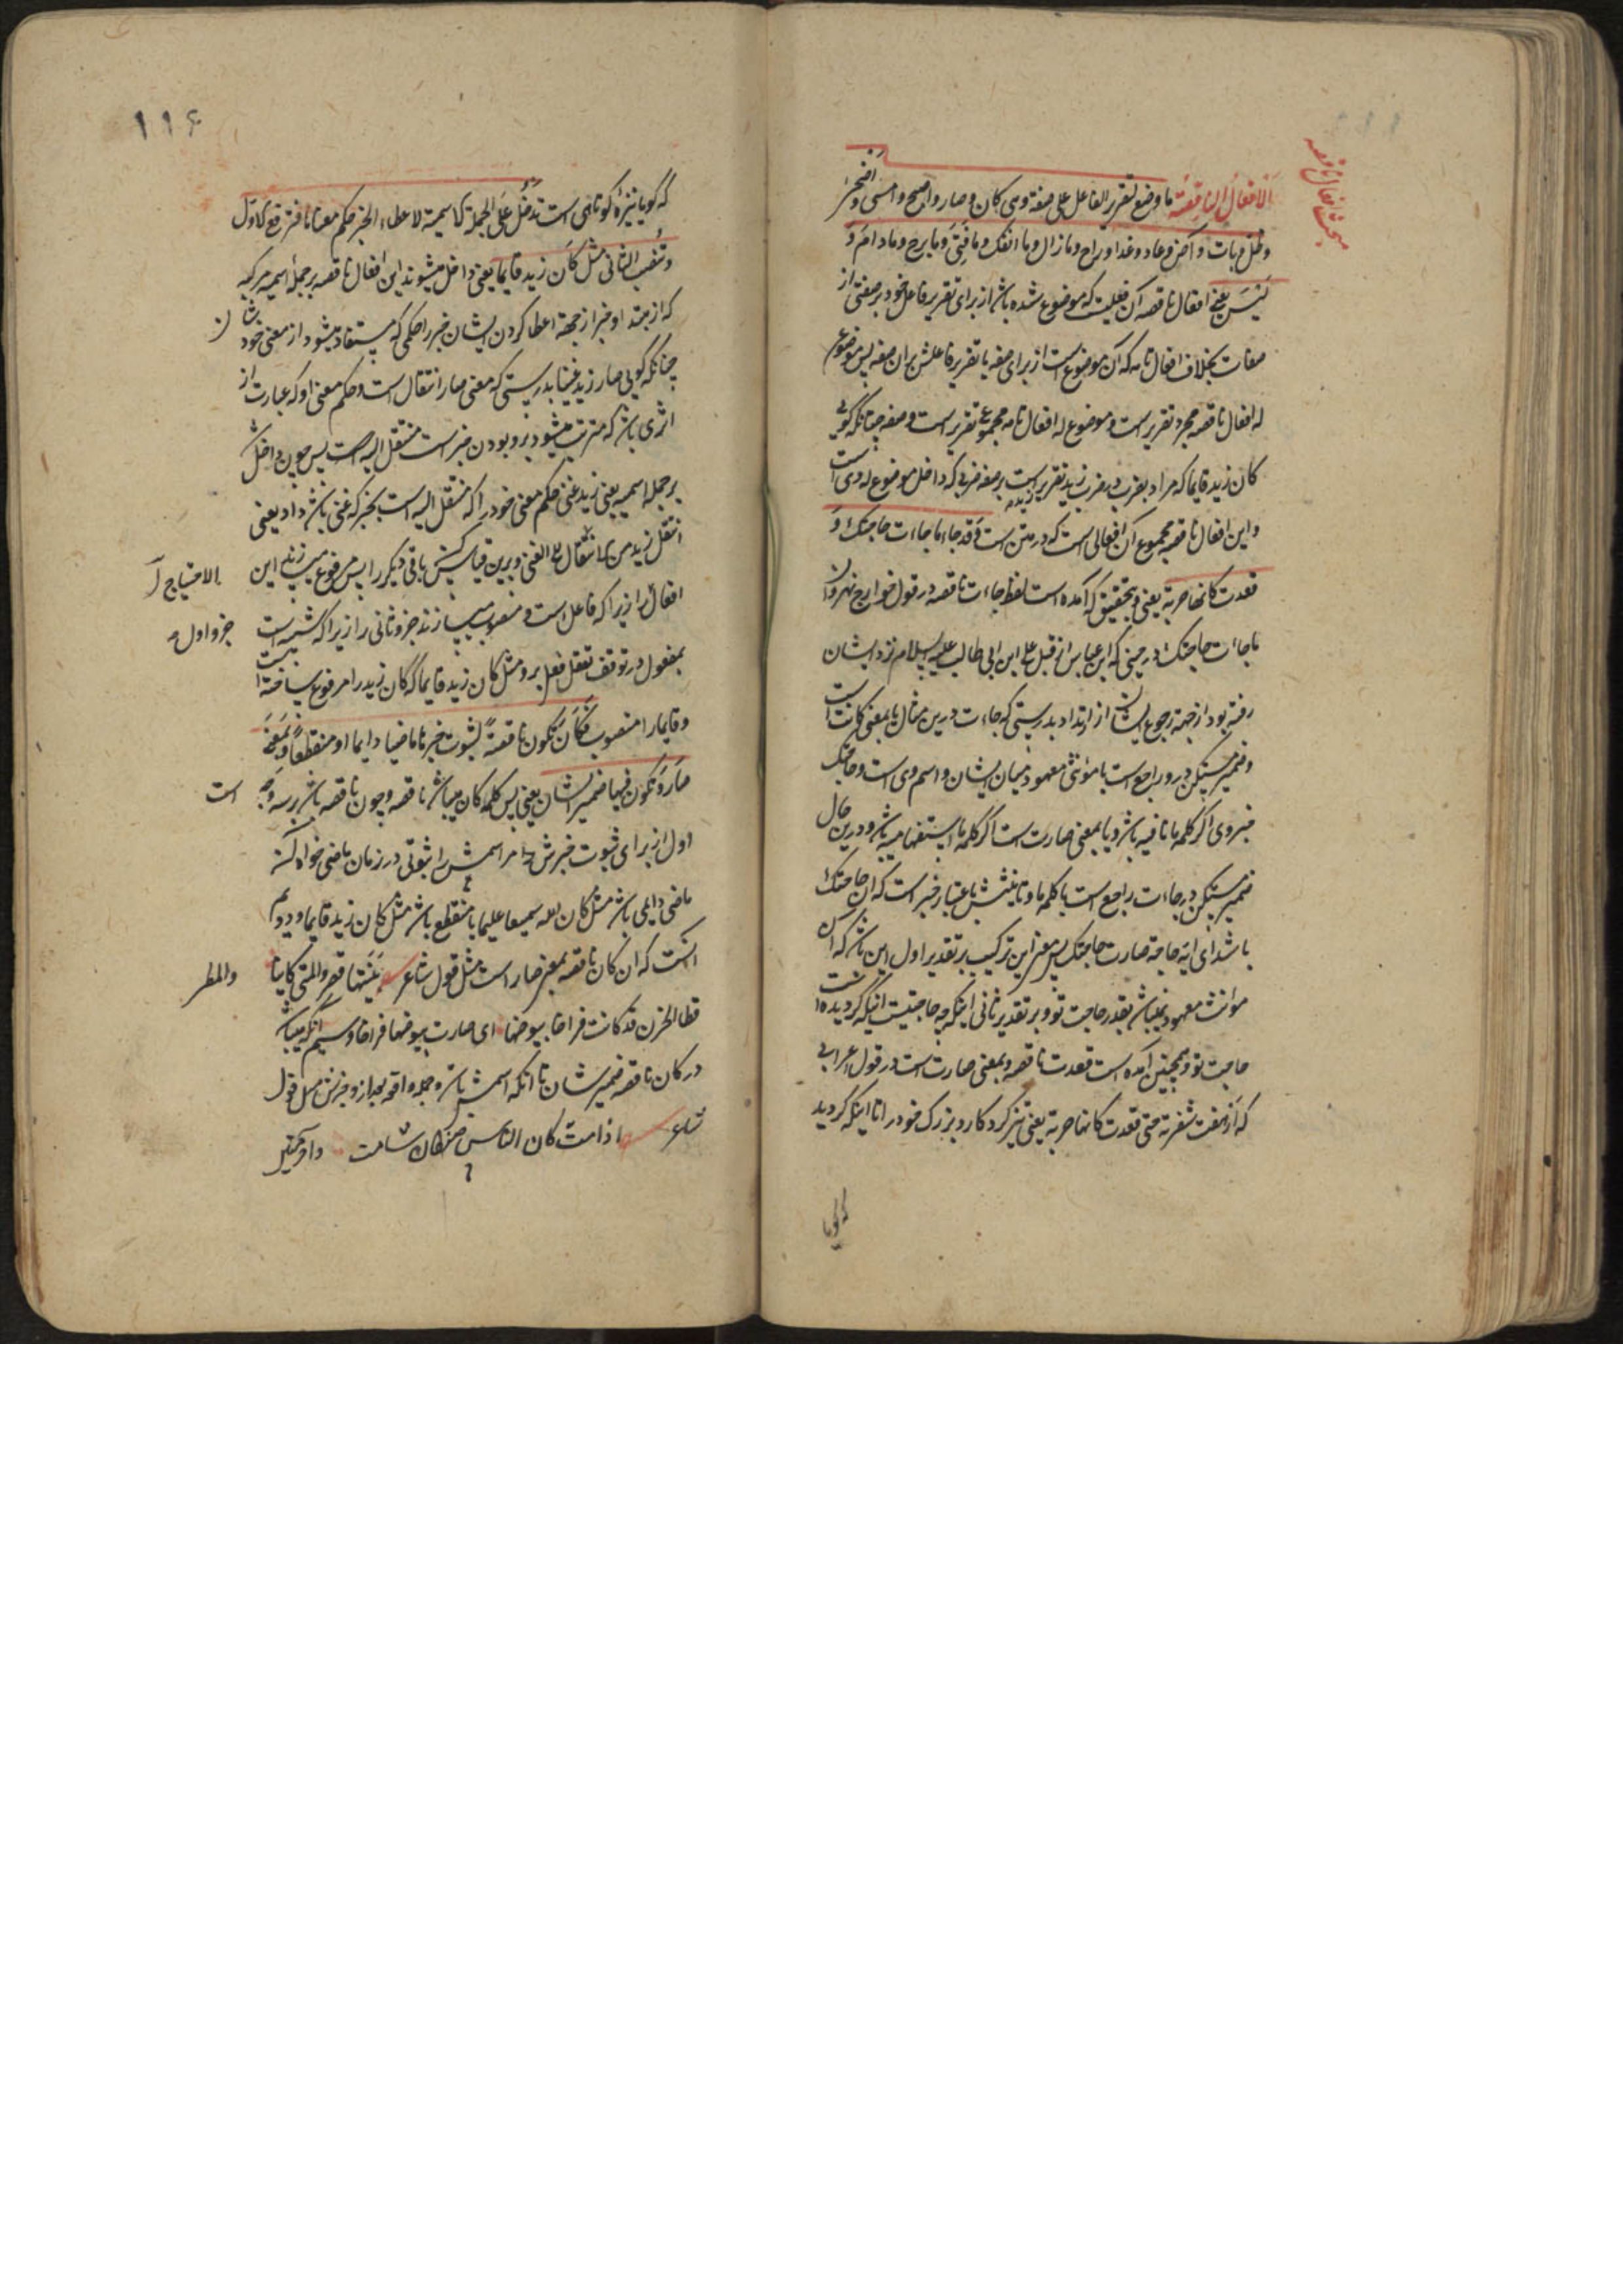 بحث افعال ناقصه
الافعال الناقصة ما وضع لتقریر الفاعل علی صفة وهی کان و صار و اصبح و امسی و اضحی
و ظل و بات و آض و عاد و غدا و راح و ما زال و ما انفک و ما فتئ و ما برح و ما دام و
لیس یعنی افعال ناقصه آن فعلیست که موضوع شده باشد از برای تقریر فاعل خود بر صفتی از
صفات بخلاف افعال تامه که آن موضوع است از برای صفه با تقریر فاعلش بر ان صفه پس موضوع
له افعال ناقصه مجرد تقریر است و موضوع له افعال تامه مجموع تقریر است و صفه چنانکه گویی
کان زید قایما که مراد بضرب در ضرب زید تقریر است زید بر صفه ضربی که داخل موضوع له وی است
و این افعال ناقصه مجموع آن افعالی است که در متن است و قد جاء ما جاءت حاجتک و
قعدت کانها حربة یعنی و بتحقیق که آمده است لفظ جاءت ناقصه در قول خوارج نهروان
ما جاءت حاجتک در حینی که ابن عباس از قبل علی ابن ابی طالب علیه السلام نزد ایشان
رفته بود از جهة رجوع ایشان از ارتداد بدرستی که جاءت درین مثال یا بمعنی کانت است
و ضمیر مستکن در و راجع است با مؤنثی معهود میان ایشان و اسم وی است و حاجتک
خبر وی اگر کلمه ما نافیه باشد و یا بمعنی صارت است اگر کلمه ما استفهامیه باشد و درین حال
ضمیر مستکن در جاءت راجع است با کلمه ما و تانیثش باعتبار خبر است که آن حاجتک
باشد ای ایة حاجة صارت حاجتک پس معنی این ترکیب بر تقدیر اول این باشد که آن
مؤنث معهود نمیباشد بقدر حاجت تو و بر تقدیر ثانی اینکه چه حاجتیست آنکه گردیده است
حاجت تو و همچنین آمده است قعدت ناقصه و بمعنی صارت است در قول اعرابی
که ارهف شفرته حتی قعدت کانها حربة یعنی تیز کرد کارد بزرگ خود را تا اینکه گردید
که گویا
۱۱۶
که گویا نیزۀ کوتاهی است تدخل علی الجملة الاسمیة لاعطاء الخبر حکم معناها فترفع الاول
و تنصب الثانی مثل کان زید قایما یعنی داخل میشوند این افعال ناقصه بر جملۀ اسمیه مرکبه
که از مبتدا و خبر از جهة اعطا کردن ایشان خبر را حکمی که مستفاد میشود از معنی خود شان
چنانکه گویی صار زید غنیا بدرستی که معنی صار انتقال است و حکم معنی او که عبارت از
اثری باشد که مترتب میشود برو بودن خبر است منتقل الیه است پس چون داخل شد
بر جمله اسمیه یعنی زید غنی حکم معنی خود را که منتقل الیه است بخبر که غنی باشد داد یعنی
انتقل زید من انتقال الی الغنی و برین قیاس کنش باقی دیگر را پس مرفوع میسازند این
الاحتیاج
افعال را زیرا که فاعل است و منصوب میسازند جزو ثانی را زیرا که شبیه است
جزو اول
بمفعول در توقف تعقل فعل برو مثل کان زید قایما که کان زید را مرفوع ساخته است
و قایما را منصوب فکان تکون ناقصة لثبوت خبرها ماضیا دایما او منقطعا و بمعنی
صار و تکون فیها ضمیر الشان یعنی پس کلمه کان میباشد ناقصه و چون ناقصه باشد بر سه وجه
است
اول از برای ثبوت خبرش مر اسمش را ثبوتی در زمان ماضی خواه که
ماضی دایمی باشد مثل کان الله سمیعا علیما یا منقطع باشد مثل کان زید قایما و دویم
آنست که ان کان ناقصه بمعنی صار است مثل قول شاعر بتیهاء قفر و المطی کانها
والمطر
قطا الحزن قد کانت فراخا بیوضها ای صارت بیوضها فراخا و سیم آنکه میباشد
در کان ناقصه ضمیر شان تا آنکه اسمش باشد و جمله واقعه بعد از و خبرش مثل قول
شاعر اذا مت کان الناس صنفان شامت و آخر مثن